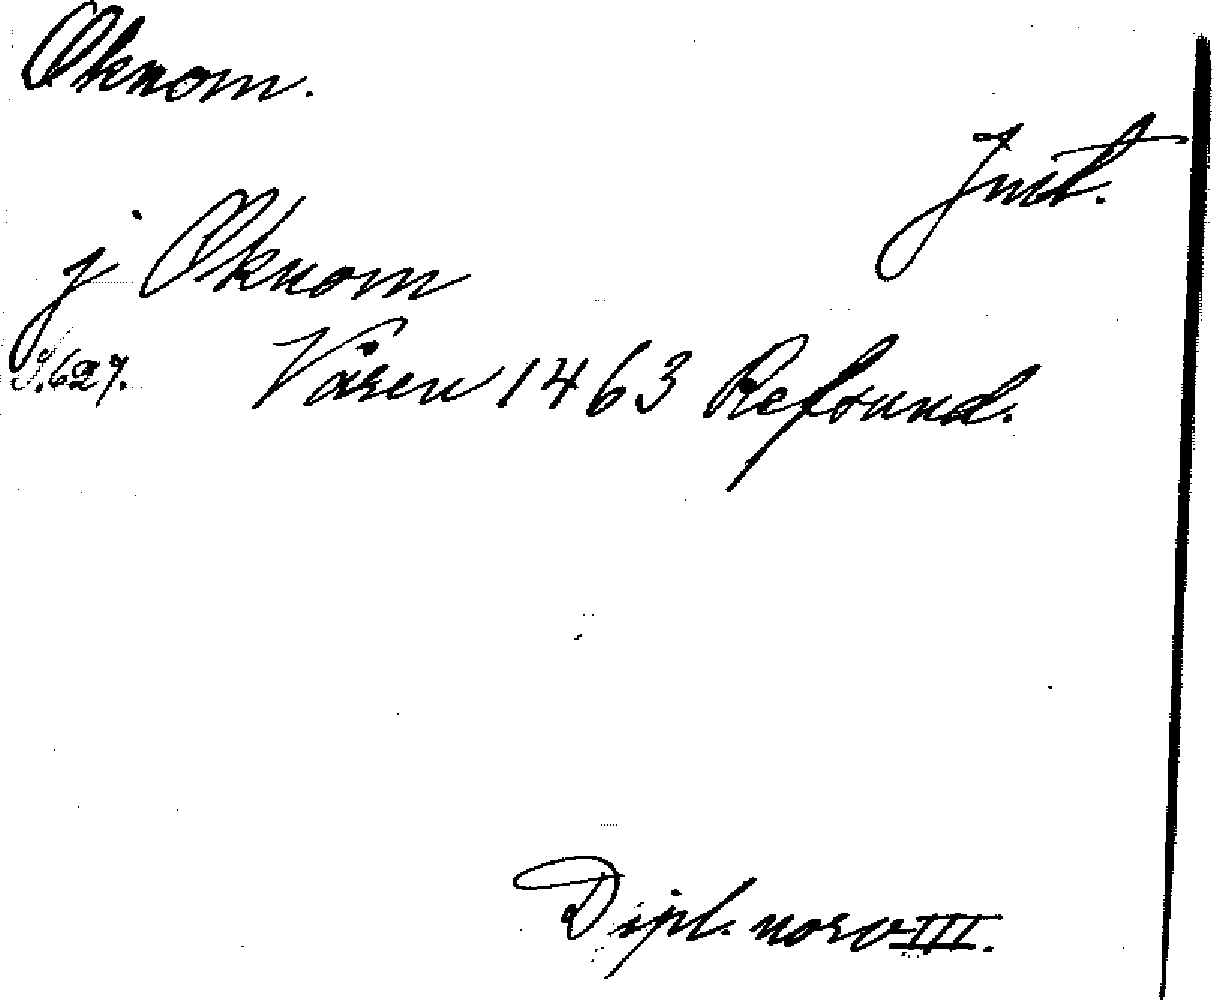 Øknom.
Jmt.
j Øknom
S. 627. Våren 1463 Refsund.
Dipl. norv III.